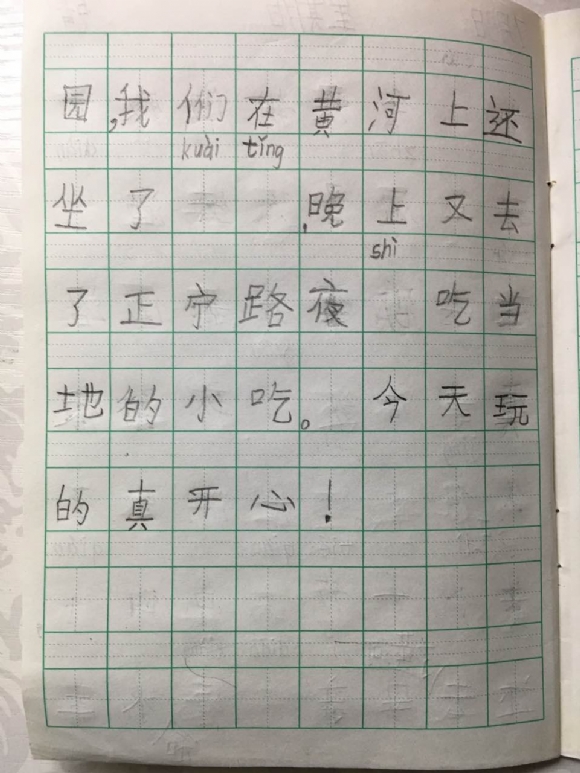 园,我们在黄河上还
kuài tǐng
坐了,晚上又去
shì
了正宁路夜 吃当
地的小吃。今天玩
的真开心!